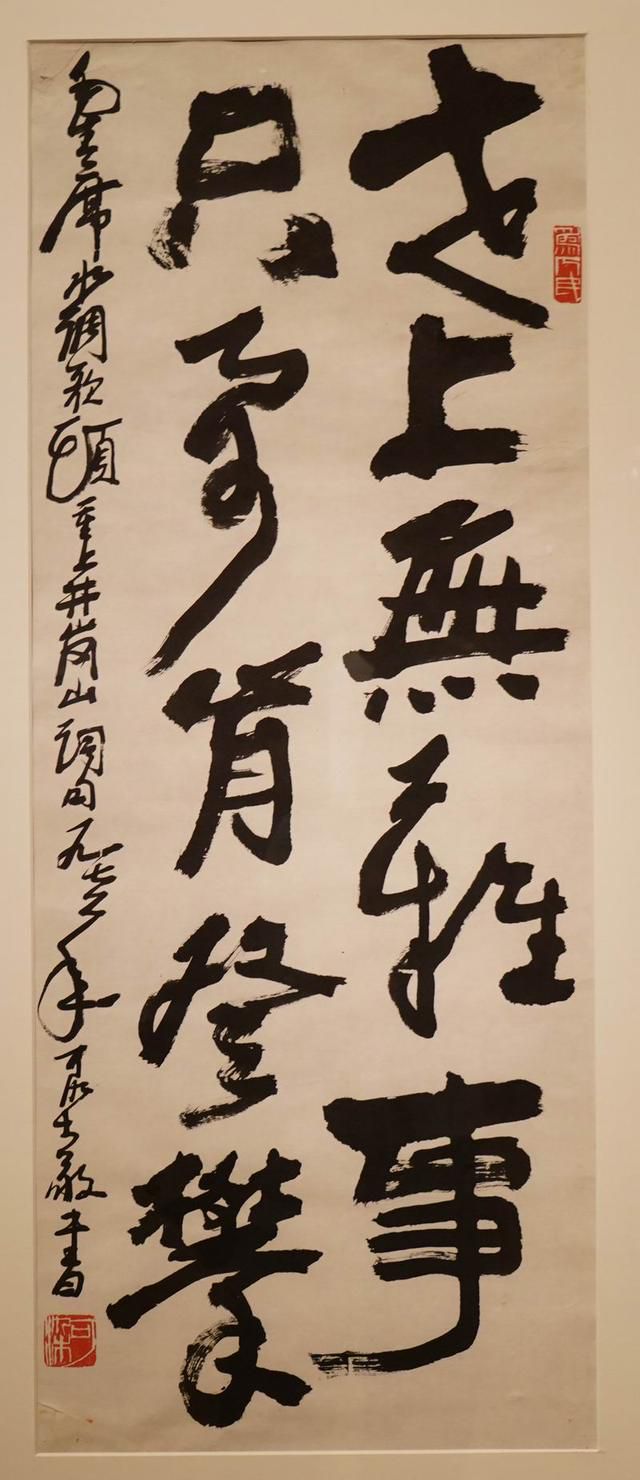 世上無難事
只要肯登攀
毛主席水調歌頭重上井崗山詞句一九七六年
為人民
可染